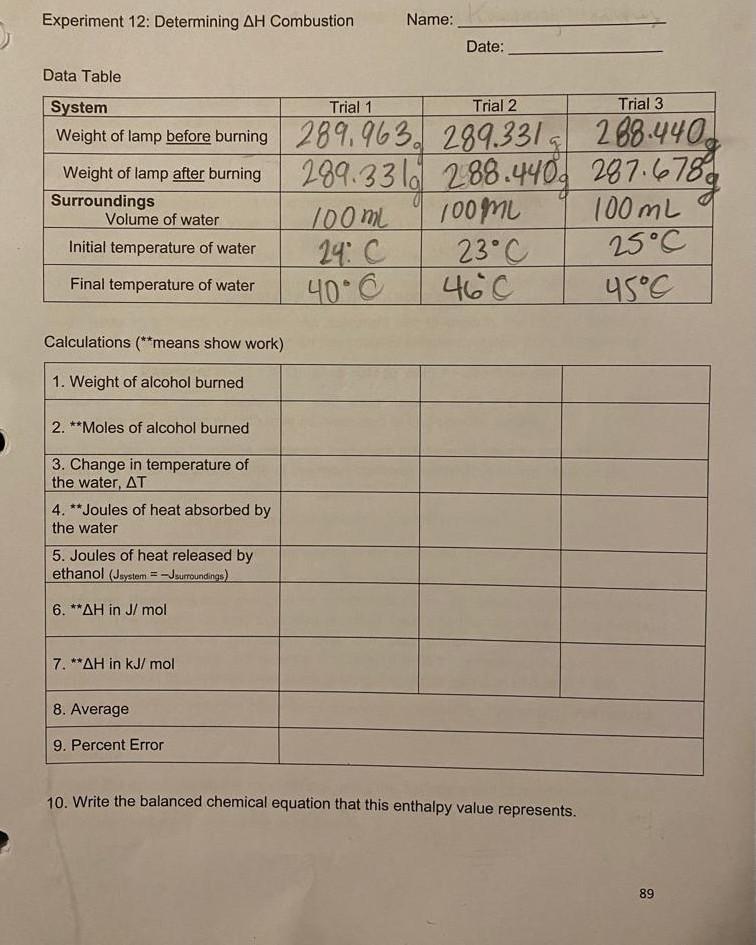 Experiment 12: Determining ΔH Combustion Name:
Date:
Data Table
System Trial 1 Trial 2 Trial 3
Weight of lamp before burning 289.963g 289.331g 288.440g
Weight of lamp after burning 289.331g 288.440g 287.678g
Surroundings
Volume of water 100 mL 100 mL 100 mL
Initial temperature of water 24°C 23°C 25°C
Final temperature of water 40°C 46°C 45°C
Calculations (**means show work)
1. Weight of alcohol burned
2. **Moles of alcohol burned
3. Change in temperature of
the water, ΔT
4. **Joules of heat absorbed by
the water
5. Joules of heat released by
ethanol (Jsystem = –Jsurroundings)
6. **ΔH in J/ mol
7. **ΔH in kJ/ mol
8. Average
9. Percent Error
10. Write the balanced chemical equation that this enthalpy value represents.
89